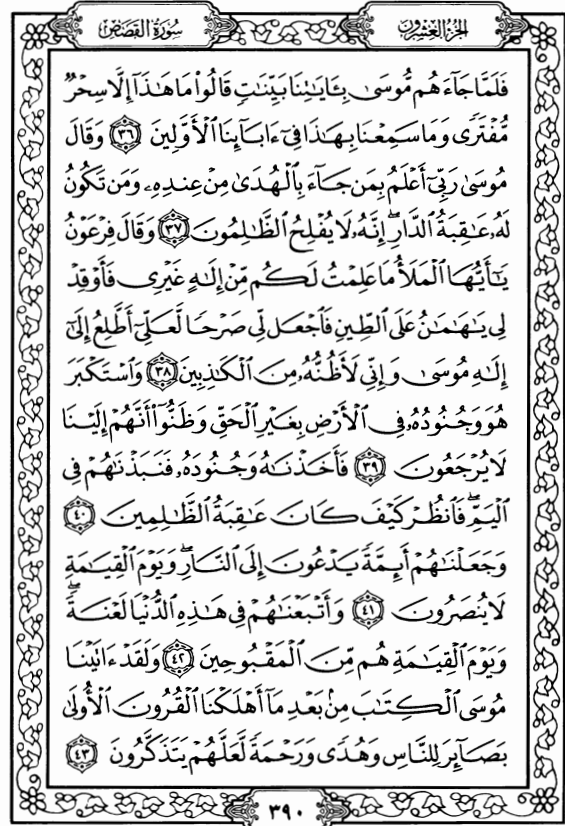 سُورَةُ القَصَصِ
الجُزءُ العِشْرُونَ
فَلَمَّا جَآءَهُم مُّوسَىٰ بِـَٔايَٰتِنَا بَيِّنَٰتٍ قَالُوا۟ مَا هَٰذَآ إِلَّا سِحْرٌ
مُّفْتَرًى وَمَا سَمِعْنَا بِهَٰذَا فِىٓ ءَابَآئِنَا ٱلْأَوَّلِينَ ٣٦ وَقَالَ
مُوسَىٰ رَبِّىٓ أَعْلَمُ بِمَن جَآءَ بِٱلْهُدَىٰ مِنْ عِندِهِۦ وَمَن تَكُونُ
لَهُۥ عَٰقِبَةُ ٱلدَّارِ ۖ إِنَّهُۥ لَا يُفْلِحُ ٱلظَّٰلِمُونَ ٣٧ وَقَالَ فِرْعَوْنُ
يَٰٓأَيُّهَا ٱلْمَلَأُ مَا عَلِمْتُ لَكُم مِّنْ إِلَٰهٍ غَيْرِى فَأَوْقِدْ
لِى يَٰهَٰمَٰنُ عَلَى ٱلطِّينِ فَٱجْعَل لِّى صَرْحًا لَّعَلِّىٓ أَطَّلِعُ إِلَىٰٓ
إِلَٰهِ مُوسَىٰ وَإِنِّى لَأَظُنُّهُۥ مِنَ ٱلْكَٰذِبِينَ ٣٨ وَٱسْتَكْبَرَ
هُوَ وَجُنُودُهُۥ فِى ٱلْأَرْضِ بِغَيْرِ ٱلْحَقِّ وَظَنُّوٓا۟ أَنَّهُمْ إِلَيْنَا
لَا يُرْجَعُونَ ٣٩ فَأَخَذْنَٰهُ وَجُنُودَهُۥ فَنَبَذْنَٰهُمْ فِى
ٱلْيَمِّ ۖ فَٱنظُرْ كَيْفَ كَانَ عَٰقِبَةُ ٱلظَّٰلِمِينَ ٤٠
وَجَعَلْنَٰهُمْ أَئِمَّةً يَدْعُونَ إِلَى ٱلنَّارِ ۖ وَيَوْمَ ٱلْقِيَٰمَةِ
لَا يُنصَرُونَ ٤١ وَأَتْبَعْنَٰهُمْ فِى هَٰذِهِ ٱلدُّنْيَا لَعْنَةً ۖ
وَيَوْمَ ٱلْقِيَٰمَةِ هُم مِّنَ ٱلْمَقْبُوحِينَ ٤٢ وَلَقَدْ ءَاتَيْنَا
مُوسَى ٱلْكِتَٰبَ مِنۢ بَعْدِ مَآ أَهْلَكْنَا ٱلْقُرُونَ ٱلْأُولَىٰ
بَصَآئِرَ لِلنَّاسِ وَهُدًى وَرَحْمَةً لَّعَلَّهُمْ يَتَذَكَّرُونَ ٤٣
٣٩٠